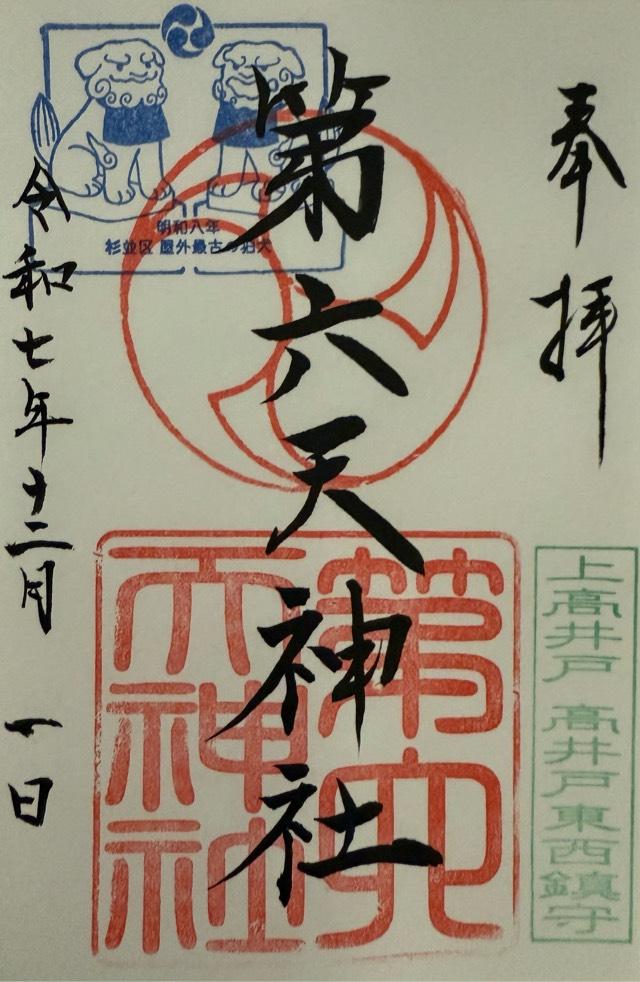 奉拝
上高井戸 高井戸東西鎮守
第六天神社
第六
天神社
明和八年
杉並区 屋外最古の狛犬
令和七年十二月一日